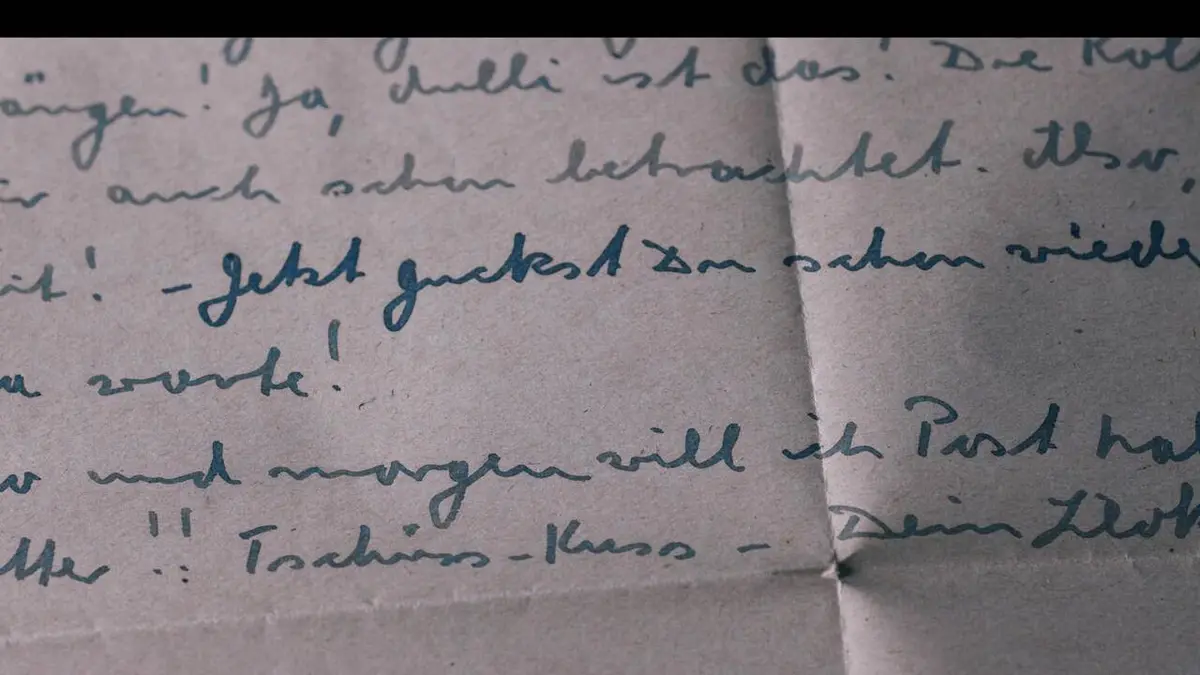 ängen! Ja, dulli ist das! Die Kol
auch schon betrachtet. Also,
it! - Jetzt guckst Du schon wiede
a warte!
und morgen will ich Post hab
tter!! Tschüss-Kuss - Dein